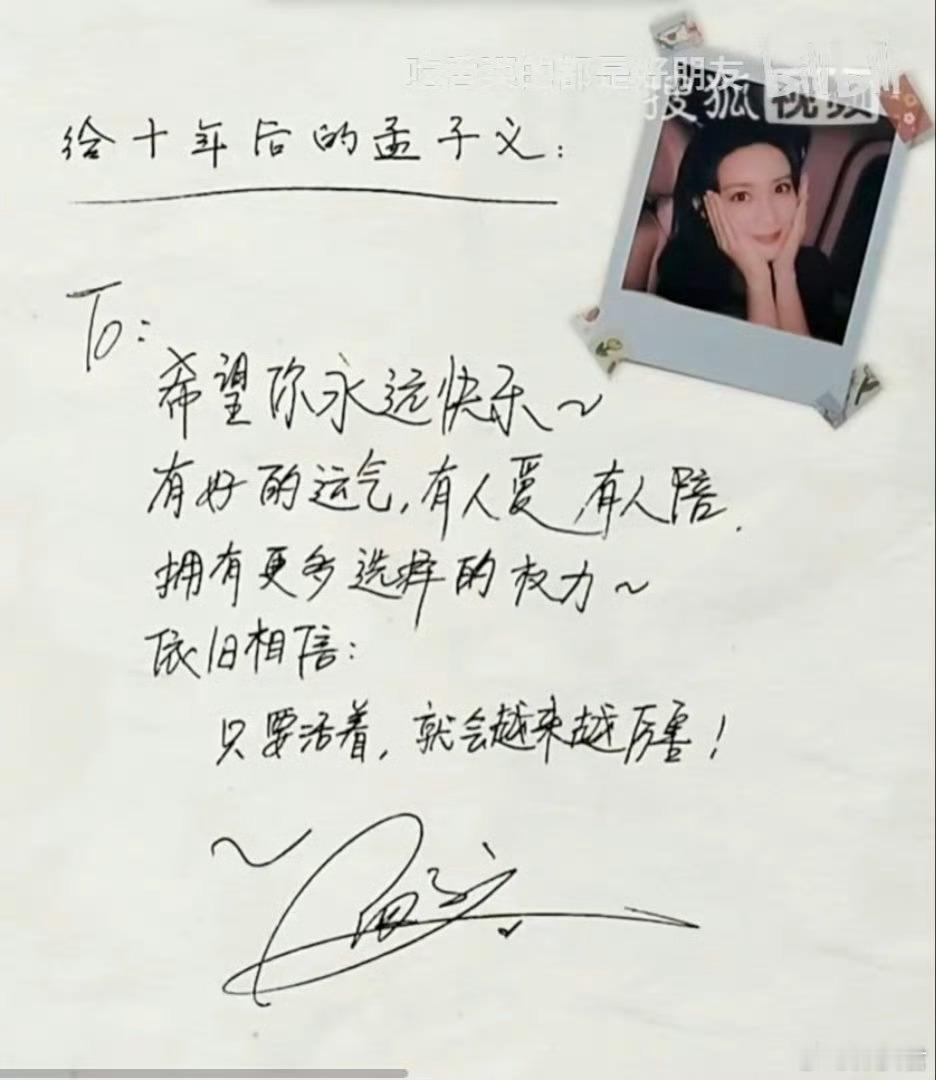 吃苦哭的都是好朋友
搜狐视频
给十年后的孟子义：
To：
希望你永远快乐～
有好的运气，有人爱，有人陪．
拥有更多选择的权力～
依旧相信：
只要活着，就会越来越厉害！
～孟子义